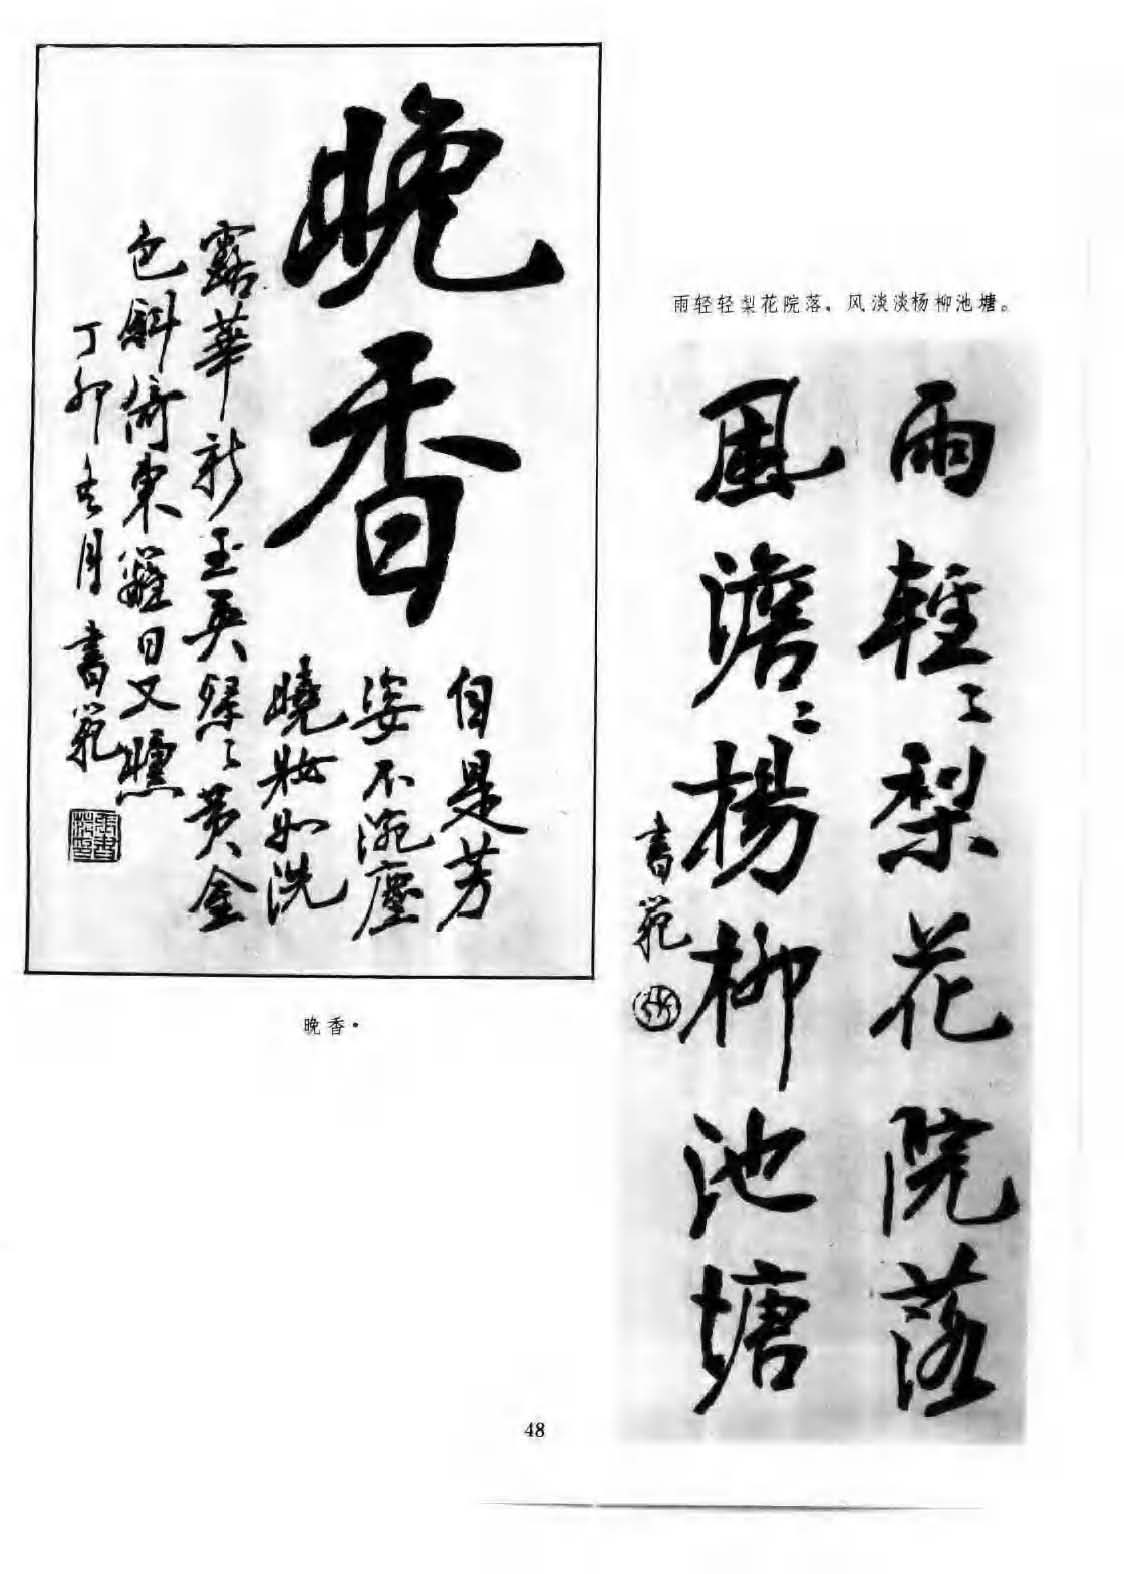 晚香
自是芳
姿不涴塵
曉妝如洗
露華新玉英繆〻黄金
色斜倚東籬日又曛
丁卯冬月書範
晚香·
雨轻轻梨花院落，风淡淡杨柳池塘。
雨輕〻梨花院落
風澹〻楊柳池塘
書範
48